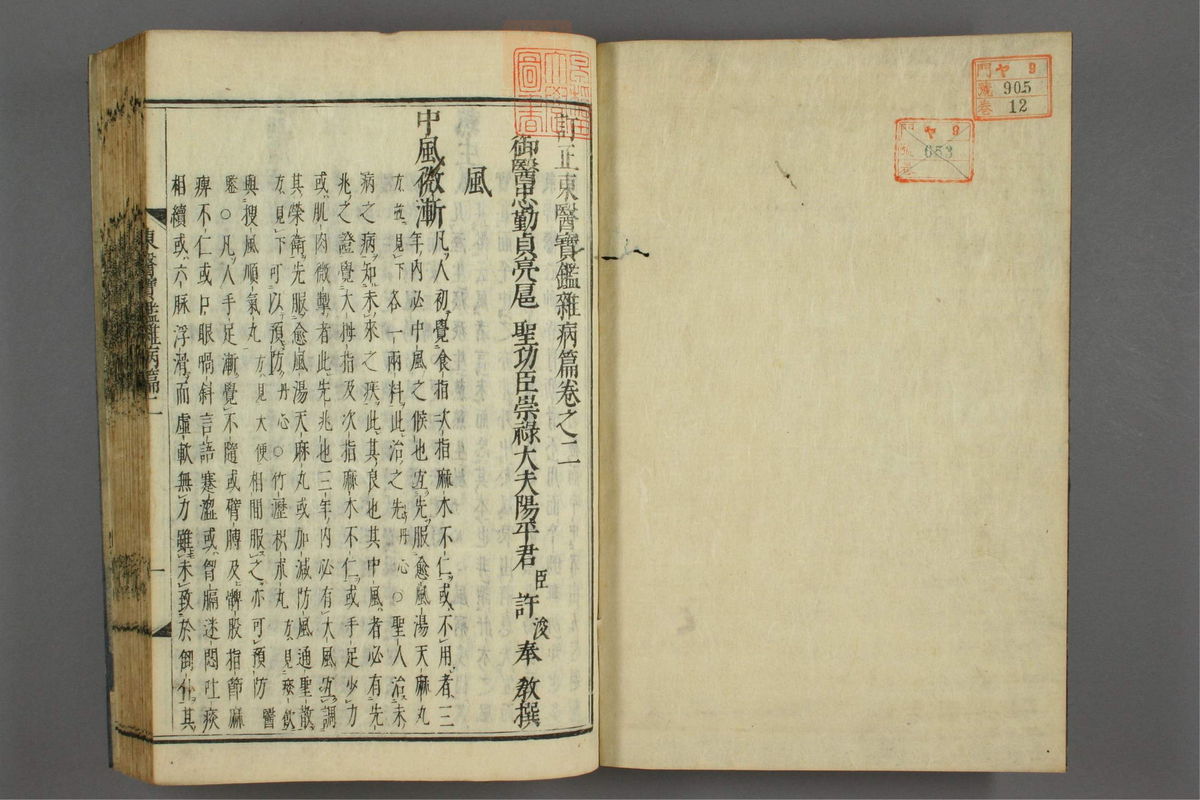 門 ヤ 9
號 905
卷 12
門 ヤ 9
號 653
卷
訂正東醫寶鑑雜病篇卷之二
御醫忠勤貞亮扈聖功臣崇祿大夫陽平君臣許浚奉教撰
風
中風微漸
凡人初覺食指次指麻木不仁或不用者三
年內必中風之候也宜先服愈風湯天麻丸
方並見下各一兩料此治之先丹心○聖人治未
病之病知未來之疾此其良也其中風者必有先
兆之證覺大拇指及次指麻木不仁或手足少力
或肌肉微掣者此先兆也三年內必有大風宜調
其榮衛先服愈風湯天麻丸或加減防風通聖散
方見下可以預防丹心○竹瀝枳朮丸方見痰飲
與搜風順氣丸方見大便相間服之亦可預防醫
鑒○凡人手足漸覺不隨或臂膊及髀股指節麻
痺不仁或口眼喎斜言語蹇澁或胷膈迷悶吐痰
相續或六脉浮滑而虛軟無力雖未致於倒仆其
東醫寶鑑雜病篇二
一